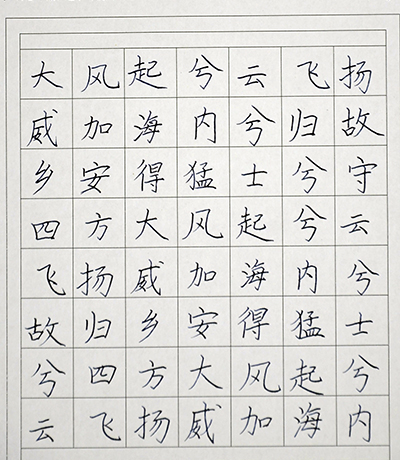 大风起兮云飞扬
威加海内兮归故
乡安得猛士兮守
四方大风起兮云
飞扬威加海内兮
故归乡安得猛士
兮四方大风起兮
云飞扬威加海内